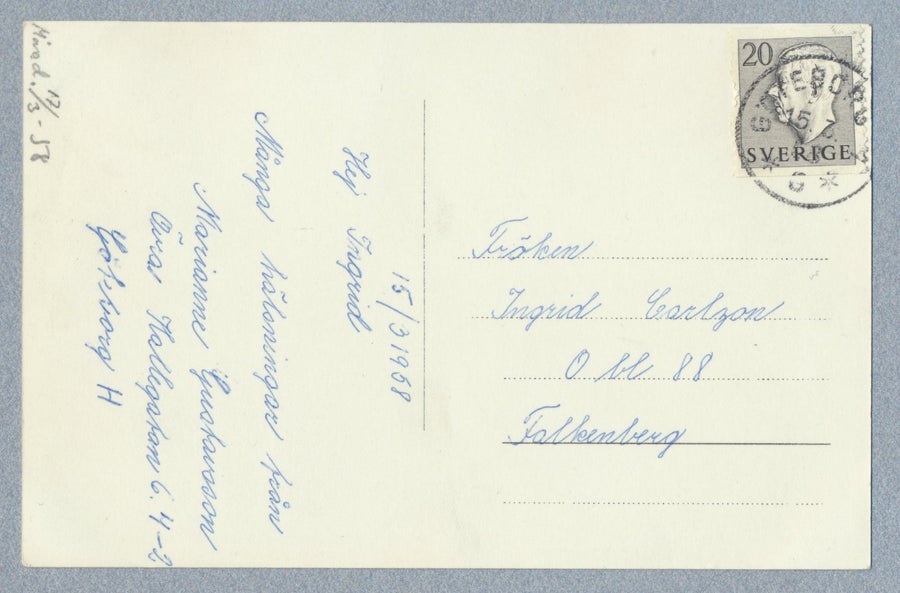 15/3 1958
Hej Ingrid
Många hälsningar från
Marianne Gustavsson
Övra Hallegatan 6. 4-2
Göteborg H
17/3 - 58
20
SVERIGE
GÖTEBORG
15. 3.
C
Fröken
Ingrid Carlzon
O bl 88
Falkenberg